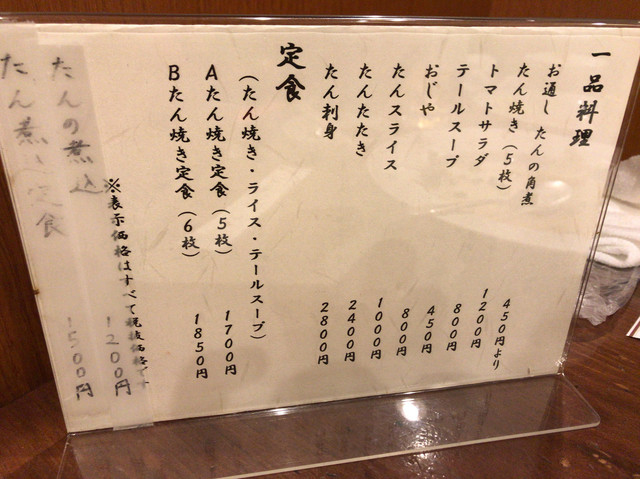 一品料理
お通し たんの角煮 450円より
たん焼き(5枚) 1200円
トマトサラダ 800円
テールスープ 450円
おじや 800円
たんスライス 1000円
たんたたき 2400円
たん刺身 2800円
定食
(たん焼き・ライス・テールスープ)
Aたん焼き定食(5枚) 1700円
Bたん焼き定食(6枚) 1850円
※表示価格はすべて税抜価格です
たんの煮込 1200円
たん煮込定食 1500円